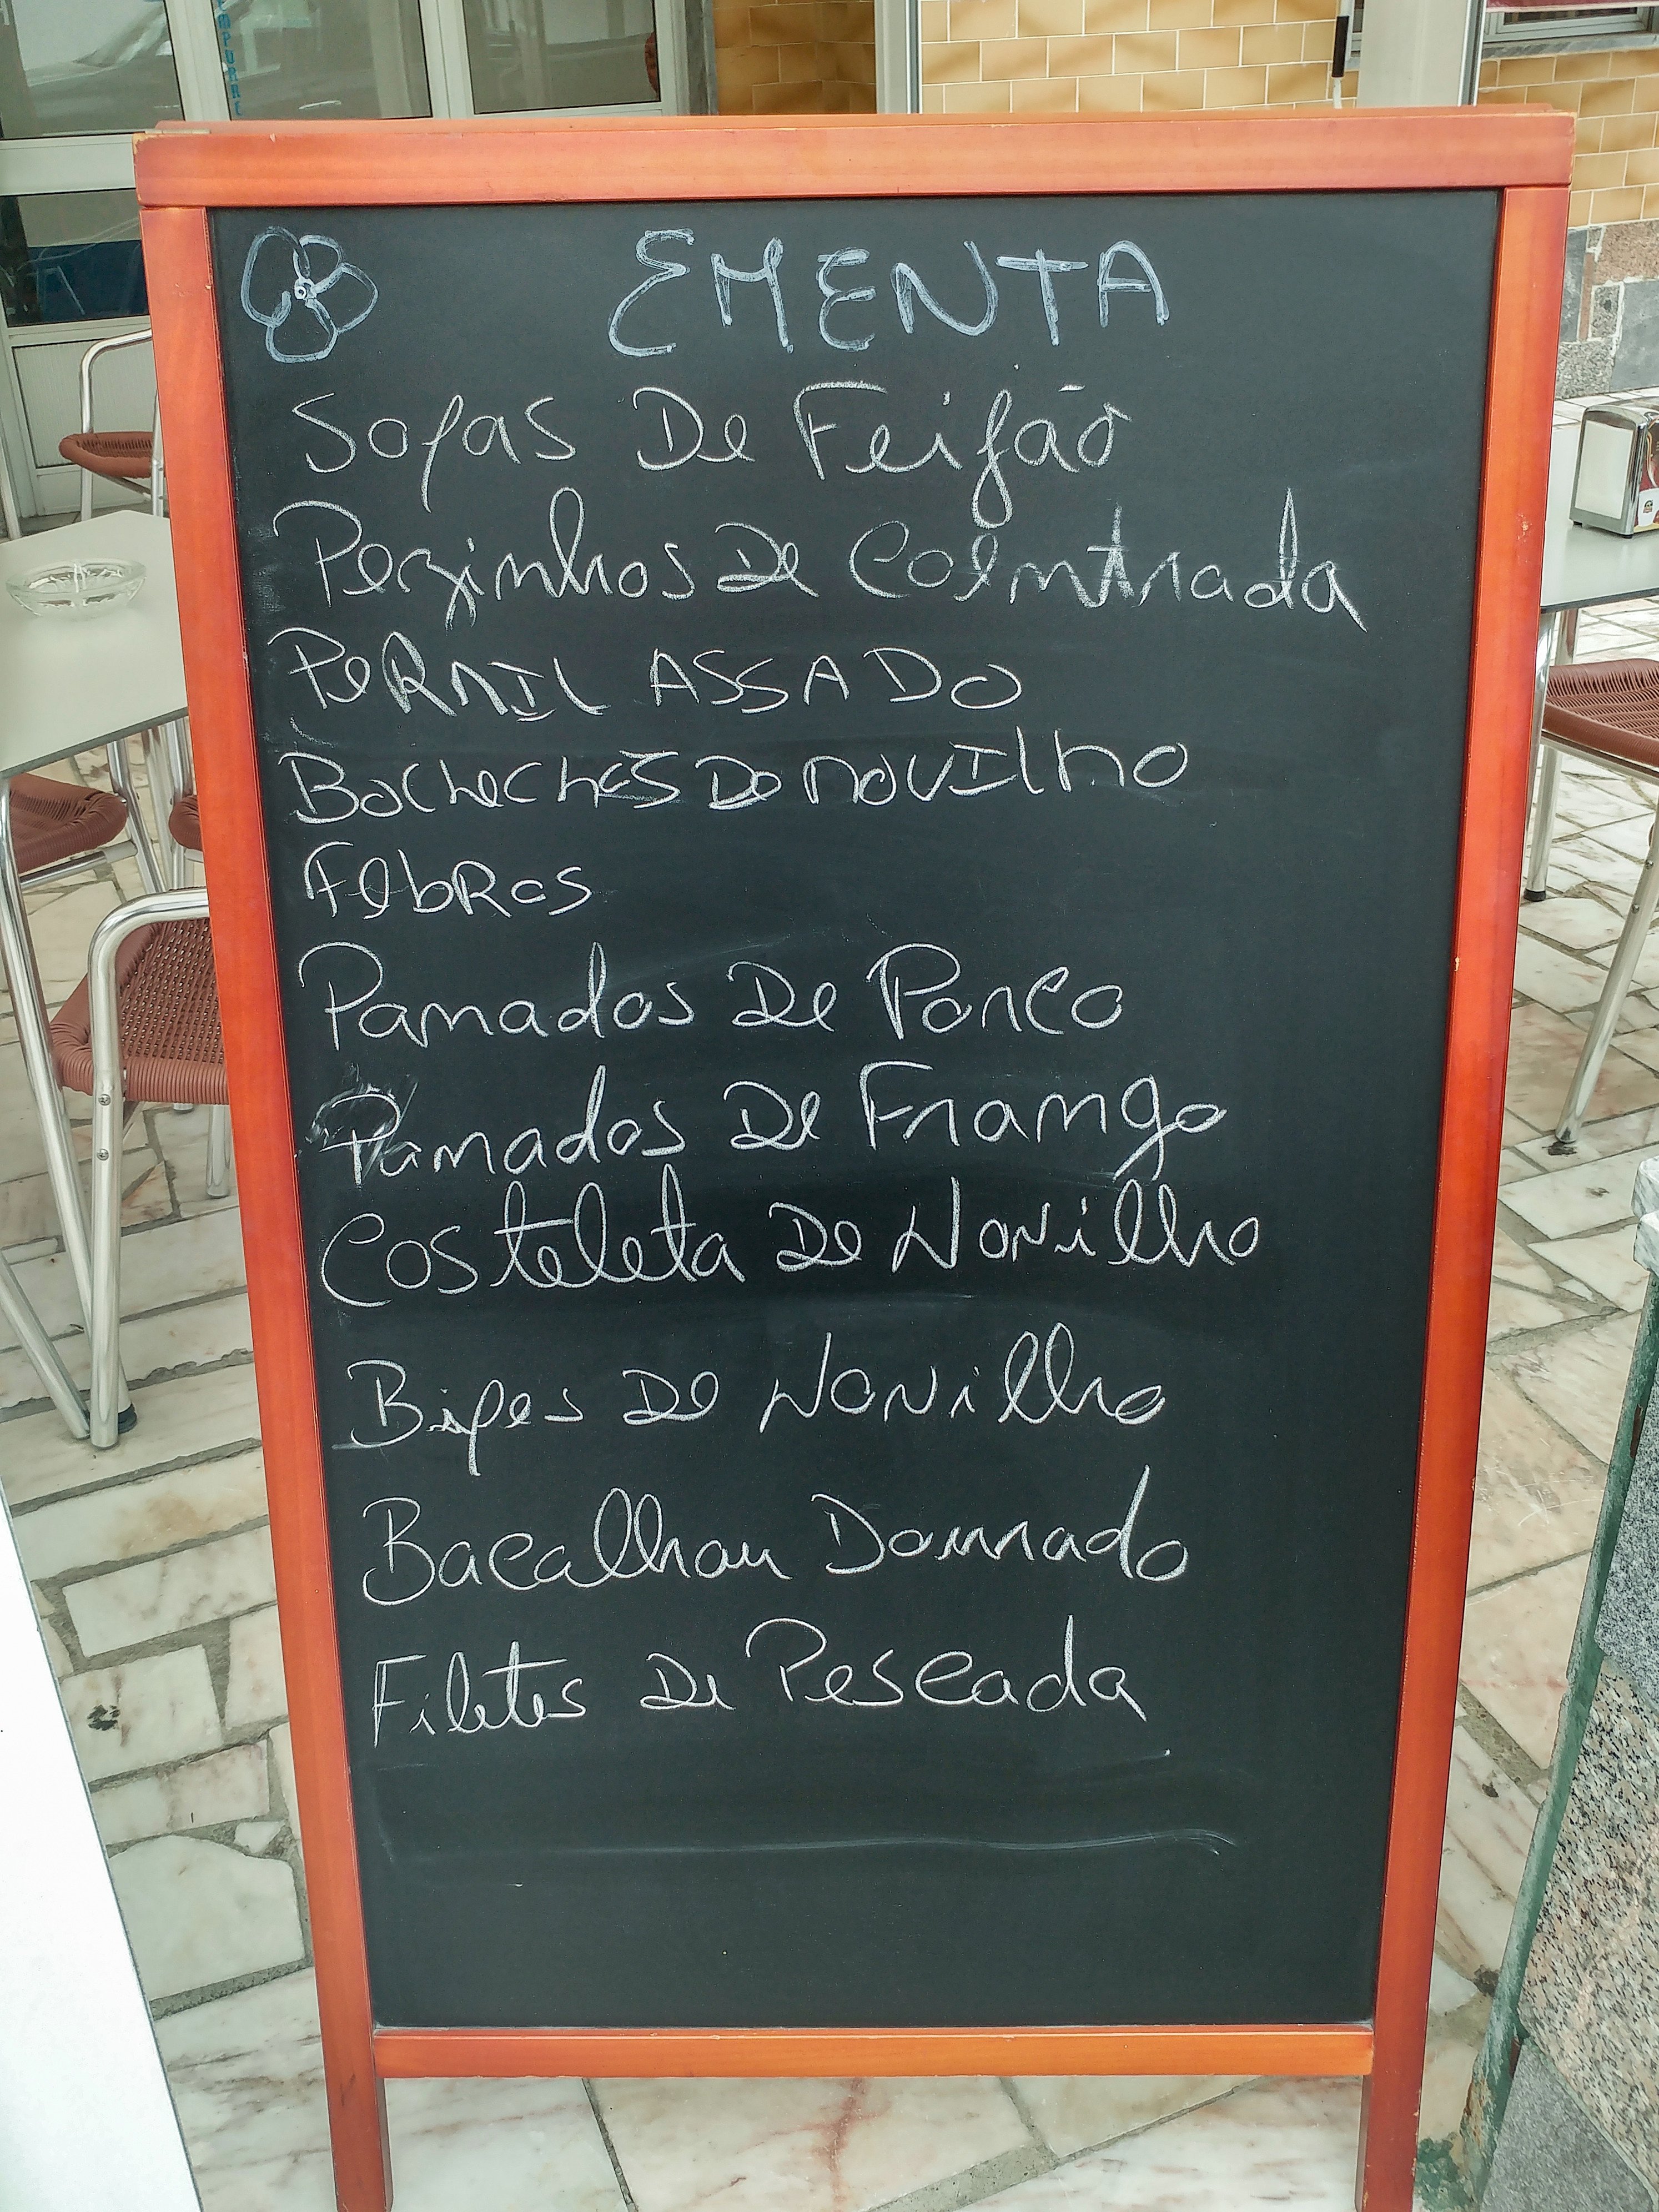 EMENTA
Sopas De Feijão
Pezinhos De Coentrada
PeRNIL ASSADO
Bochechas De novIlho
FebRas
Panados De Porco
Panados De Frango
Costeleta De Novilho
Bifes De Novilho
Bacalhau Dourado
Filetes De Pescada